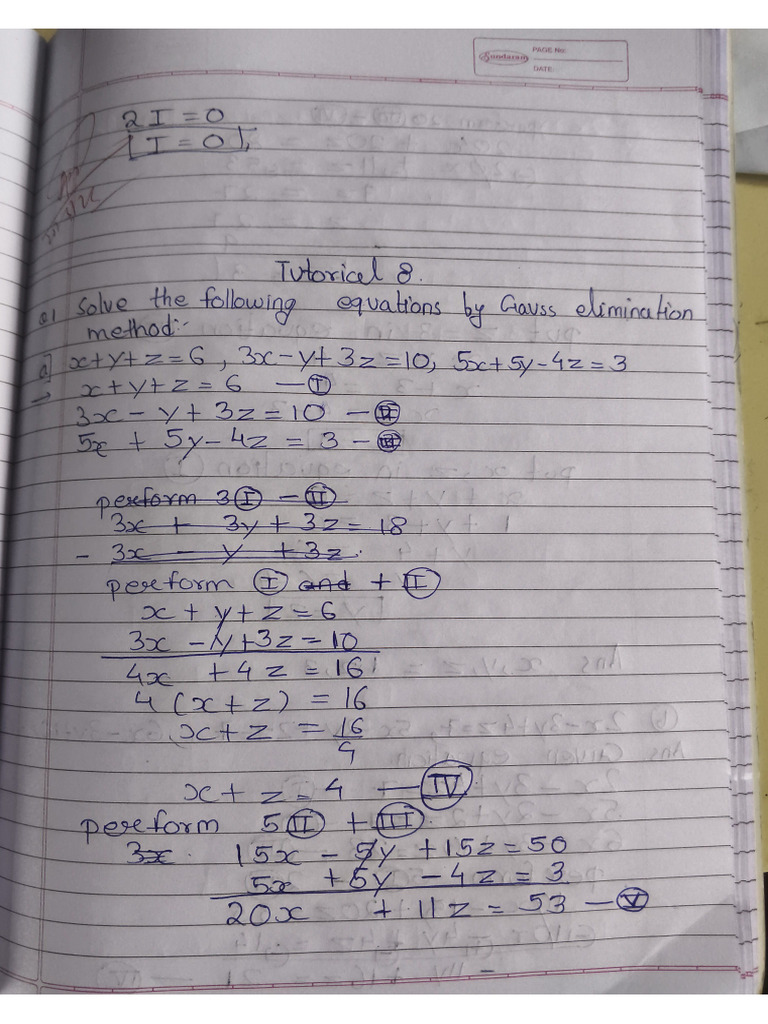 Sundaram
PAGE No.
DATE
2 I = 0
[I = 0],
Tutorical 8.
Q1 Solve the following equations by Gauss elimination
method:-
a] x+y+z=6 , 3x-y+3z=10, 5x+5y-4z=3
→ x+y+z=6 — Ⓘ
3x - y + 3z = 10 — Ⓘ︎Ⓘ
5x + 5y - 4z = 3 — III
perform 3 I - II
3x + 3y + 3z = 18
- 3x - y + 3z.
perform I and + II
x + y + z = 6
3x - y + 3z = 10
4x + 4z = 16
4 (x + z) = 16
x + z = 16
4
x + z = 4 — IV
perform 5 II + III.
3x. 15x - 5y + 15z = 50
5x + 5y - 4z = 3
20x + 11z = 53 — V